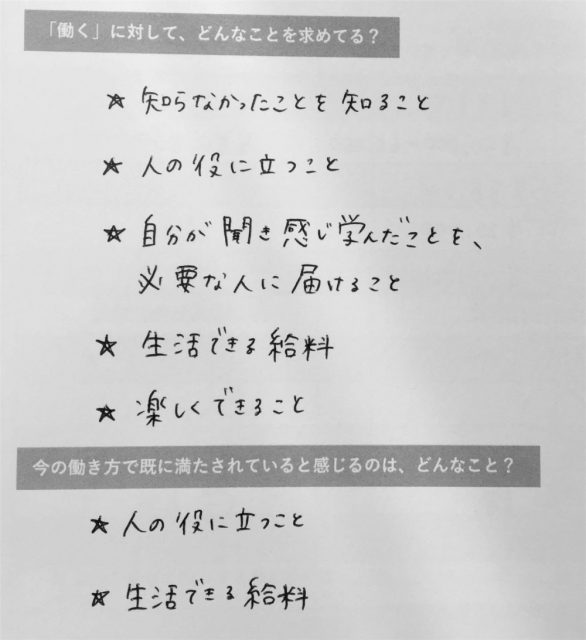 「働く」に対して、どんなことを求めてる？
☆ 知らなかったことを 知ること
☆ 人の役に立つこと
☆ 自分が聞き感じ学んだことを、
必要な人に届けること
☆ 生活できる給料
☆ 楽しくできること
今の働き方で既に満たされていると感じるのは、どんなこと？
☆ 人の役に立つこと
☆ 生活できる給料